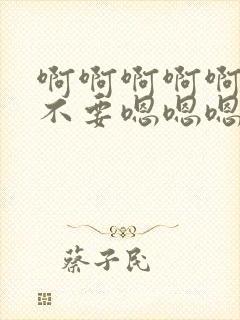 啊啊啊啊啊
不要嗯嗯嗯
蔡子民